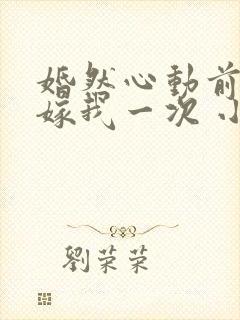 婚然心動前
嫁我一次 小
劉荣荣